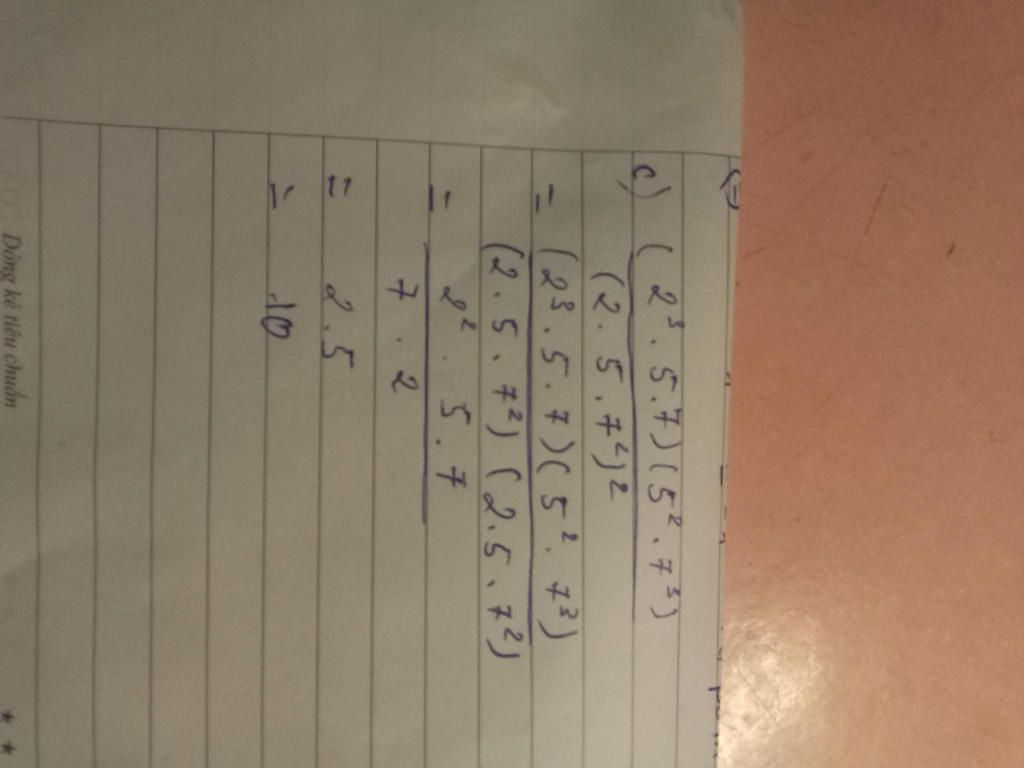 c) (2³.5.7)(5².7³)
(2.5.7²)²
= (2³.5.7)(5².7³)
(2.5.7²)(2.5.7²)
= 2².5.7
7.2
= 2.5
= 10
Dòng kẻ tiêu chuẩn